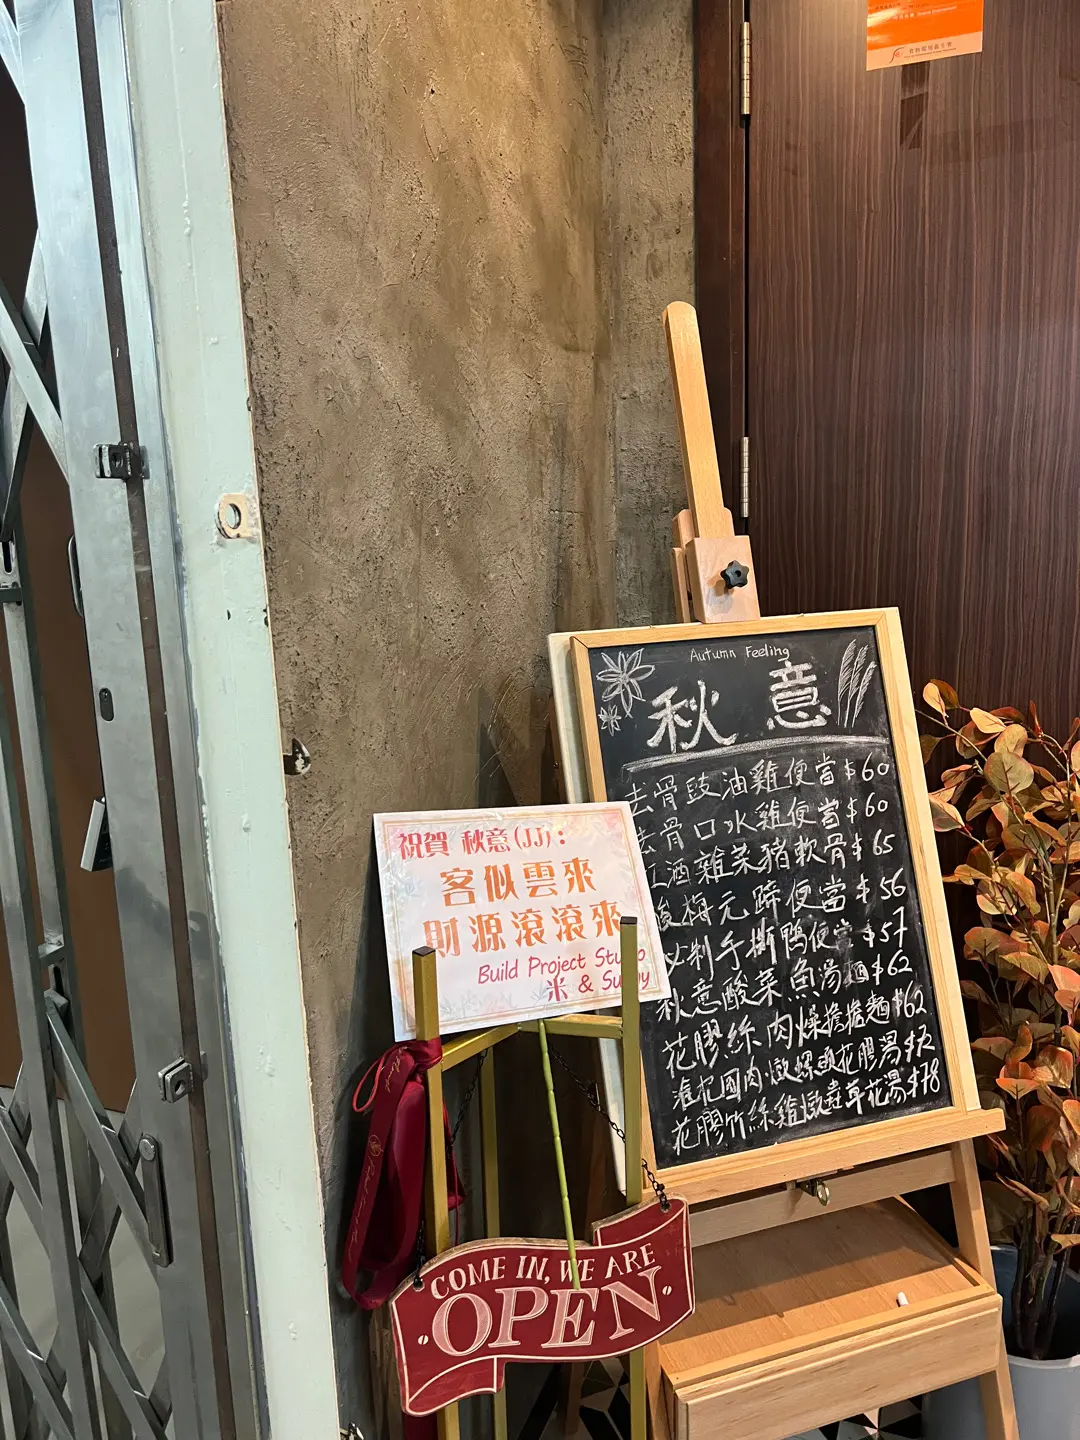 食物環境衞生署
Autumn Feeling
秋意
去骨豉油雞便當$60
去骨口水雞便當$60
紅酒雜菜豬軟骨$65
梅元蹄便當$56
手撕鴨便當$57
秋意酸菜魚湯麵$62
花膠絲肉燥擔擔麵$62
淮杞國肉燉螺頭花膠湯
花膠竹絲雞燉蟲草花湯$78
祝賀 秋意(JJ):
客似雲來
財源滾滾來
Build Project Studio
米 & Sunny
COME IN, WE ARE
OPEN